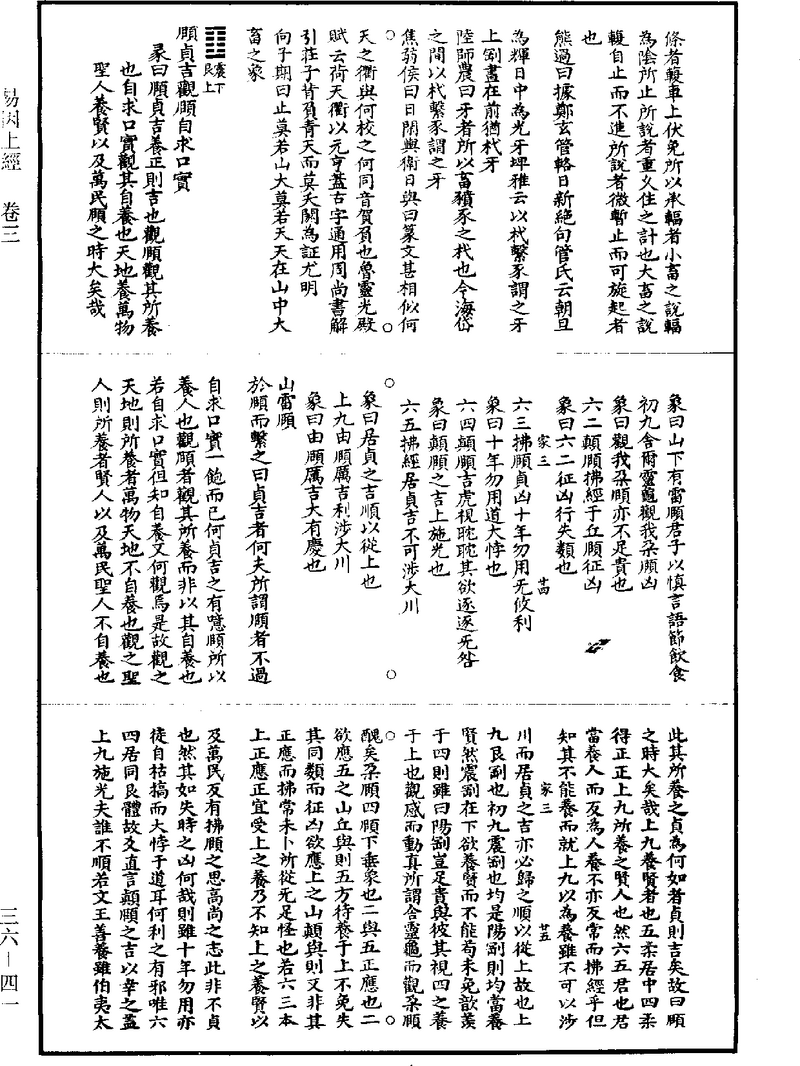 條者輹車上伏兔所以承輻者小畜之說輻
為陰所止所說者重久住之計也大畜之說
輹自止而不進所說者微暫止而可旋起者
也
熊過曰據鄭玄管輅日新絕句管氏云朝旦
為輝日中為光牙埤雅云以杙繫豕謂之牙
上劄畫在前猶杙牙
陸師農曰牙者所以畜豶豕之杙也今海岱
之間以杙繫豕謂之牙
焦弱侯曰日閑輿衛日與曰篆文甚相似何
天之衢與何校之何同音賀負也魯靈光殿
賦云荷天衢以元亨蓋古字通用周尚書解
引莊子背負青天而莫夭閼為証尤明
向子期曰止莫若山大莫若天天在山中大
畜之象
䷚震下艮上
頤貞吉觀頤自求口實
彖曰頤貞吉養正則吉也觀頤觀其所養
也自求口實觀其自養也天地養萬物
聖人養賢以及萬民頤之時大矣哉
象曰山下有雷頤君子以慎言語節飲食
初九舍爾靈龜觀我朵頤凶
象曰觀我朵頤亦不足貴也
六二顛頤拂經于丘頤征凶
象曰六二征凶行失類也
家三
廿四
六三拂頤貞凶十年勿用无攸利
象曰十年勿用道大悖也
六四顛頤吉虎視眈眈其欲逐逐无咎
象曰顛頤之吉上施光也
六五拂經居貞吉不可涉大川
象曰居貞之吉順以從上也
上九由頤厲吉利涉大川
象曰由頤厲吉大有慶也
山雷頤
於頤而繫之曰貞吉者何夫所謂頤者不過
自求口實一飽而已何貞吉之有噫頤所以
養人也觀頤者觀其所養而非以其自養也
若自求口實但知自養又何觀焉是故觀之
天地則所養者萬物天地不自養也觀之聖
人則所養者賢人以及萬民聖人不自養也
此其所養之貞為何如者貞則吉矣故曰頤
之時大矣哉上九養賢者也五柔居中四柔
得正正上九所養之賢人也然六五君也君
當養人而反為人養不亦反常而拂經乎但
知其不能養而就上九以為養雖不可以涉
家三
廿五
川而居貞之吉亦必歸之順以從上故也上
九艮劄也初九震劄也均是陽劄則均當養
賢然震劄在下欲養賢而不能苟未免歆羨
于四則雖曰陽劄豈足貴與彼其視四之養
于上也觀感而動真所謂舍靈龜而觀朵頤
醜矣朵頤四頤下垂象也二與五正應也二
欲應五之山丘與則五方待養于上不免失
其同類而征凶欲應上之山顛與則又非其
正應而拂常未卜所從无足怪也若六三本
上正應正宜受上之養乃不知上之養賢以
及萬民反有拂頤之思高尚之志此非不貞
也然其如失時之凶何哉則雖十年勿用亦
徒自枯槁而大悖于道耳何利之有邪唯六
四居同艮體故爻直言顛頤之吉以幸之蓋
上九施光夫誰不順若文王善養雖伯夷太
易因上經 卷三
三六—四一